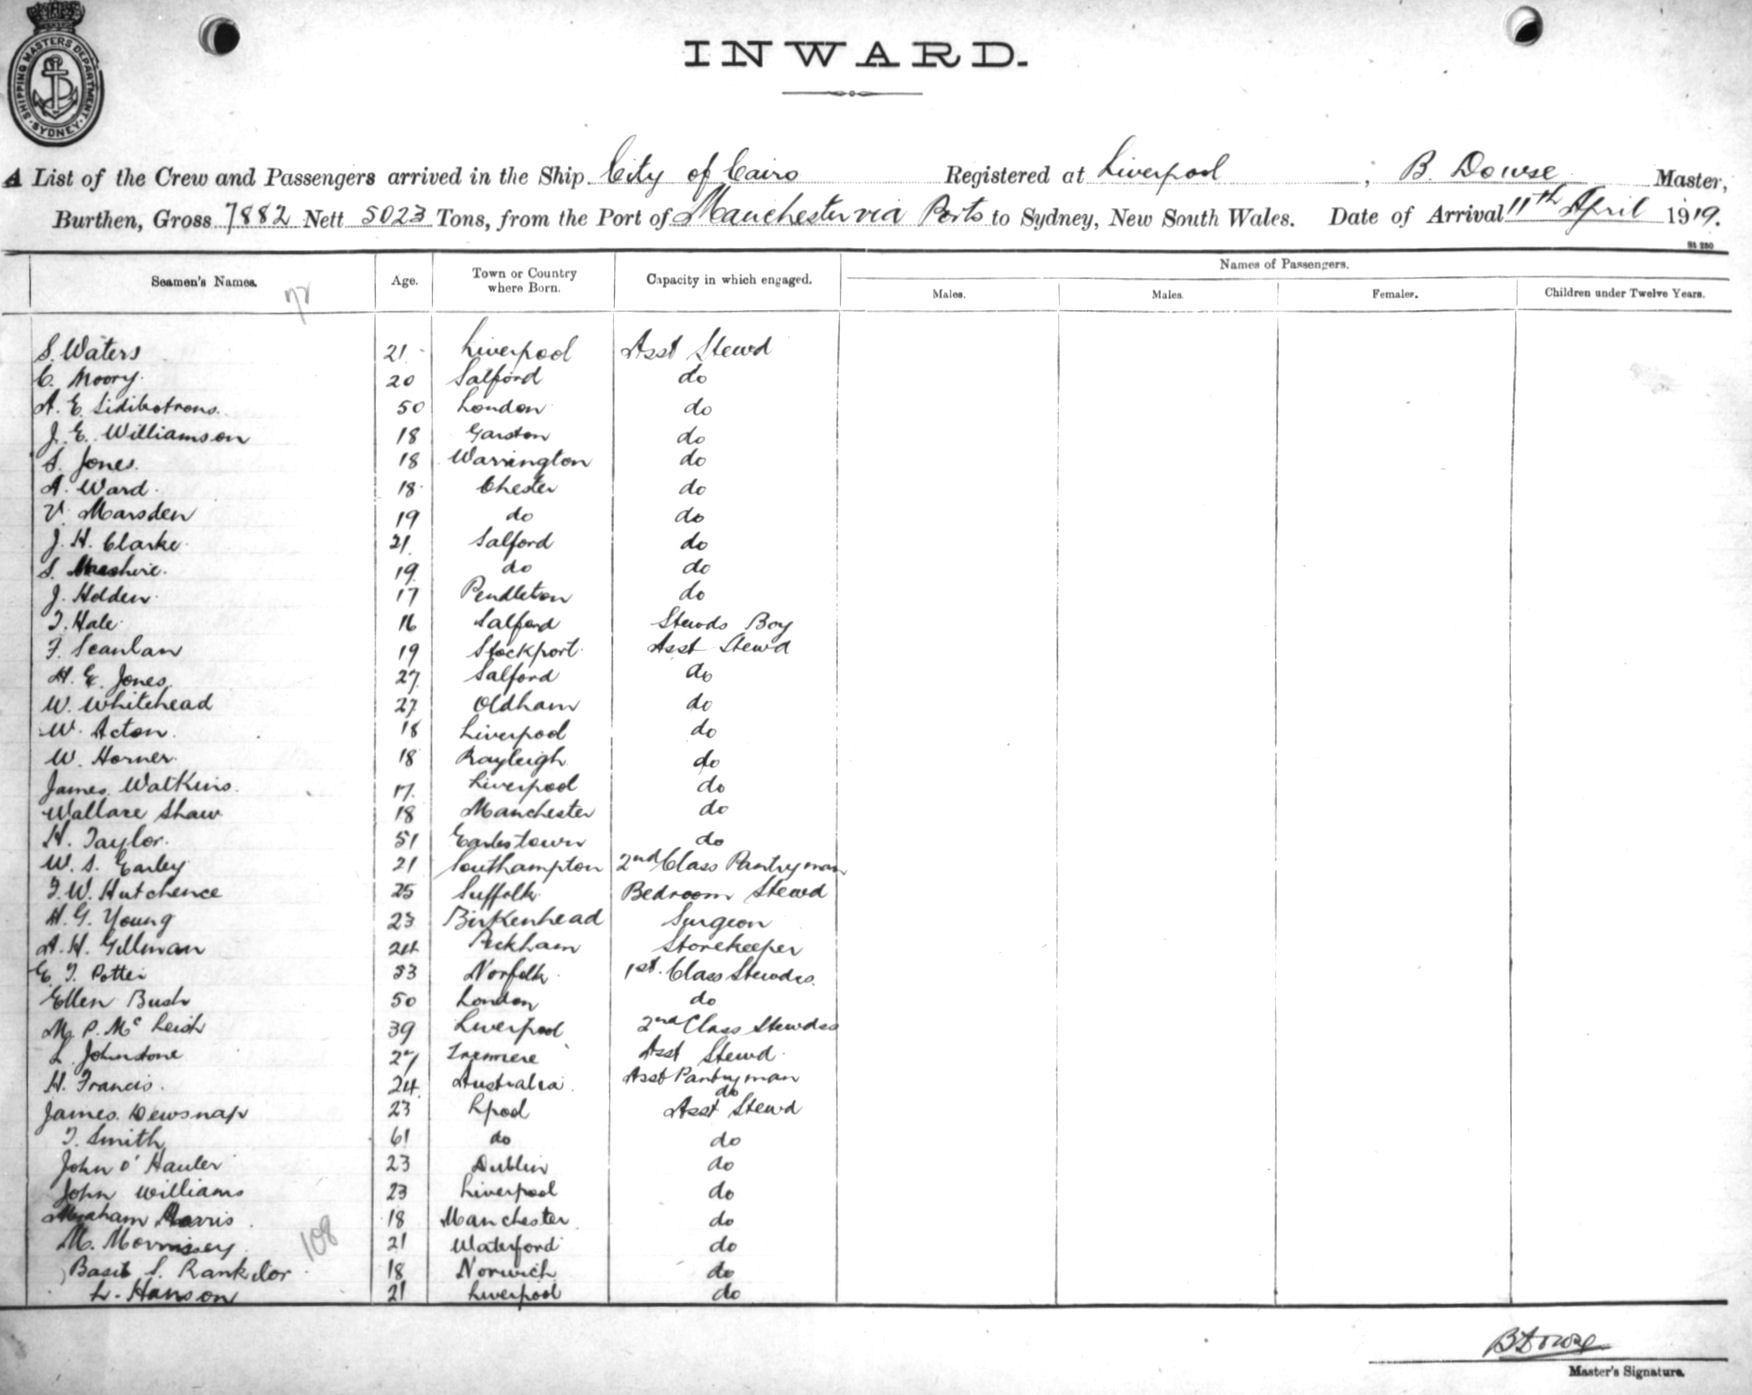 SHIPPING MASTERS DEPARTMENT SYDNEY
INWARD.
A List of the Crew and Passengers arrived in the Ship City of Cairo Registered at Liverpool ; B. Dowse Master,
Burthen, Gross 7882 Nett 5023 Tons, from the Port of Manchester via Ports to Sydney, New South Wales. Date of Arrival 11th April 1919.
Seamen's Names. Age. Town or Country where Born. Capacity in which engaged. Names of Passengers.
Males. Males. Females. Children under Twelve Years.
72
S. Waters 21 Liverpool Asst Stewd
C. Moory 20 Salford do
A. E. 50 London do
J. E. Williamson 18 Garston do
S. Jones 18 Warrington do
A. Ward 18 Chester do
V. Marsden 19 do do
J. H. Clarke 21 Salford do
S. 19 do do
J. Holden 17 Pendleton do
T. Hale 16 Salford Stewds Boy
F. Scanlan 19 Stockport Asst Stewd
H. E. Jones 27 Salford do
W. Whitehead 27 Oldham do
W. Acton 18 Liverpool do
W. Horner 18 Rayleigh do
James Watkins 17 Liverpool do
Wallace Shaw 18 Manchester do
H. Taylor 51 Earlestown do
W. S. Earley 21 Southampton 2nd Class Pantryman
F. W. Hutchence 25 Suffolk Bedroom Stewd
H. G. Young 23 Birkenhead Surgeon
A. H. Gillman 24 Peckham Storekeeper
E. T. Potter 33 Norfolk 1st Class Stewdss
Ellen Bush 50 London do
M. P. McLeish 39 Liverpool 2nd Class Stewdss
L. Johnstone 27 Asst Stewd
H. Francis 24 Australia Asst Pantryman
do
James Dewsnap 23 Lpool Asst Stewd
T. Smith 61 do do
John O' 23 Dublin do
John Williams 23 Liverpool do
Abraham Harris 18 Manchester do
M. Morrissey 21 Waterford do
108
Basil S. Rankilor 18 Norwich do
L. Hanson 21 Liverpool do
B Dowse
Master's Signature.